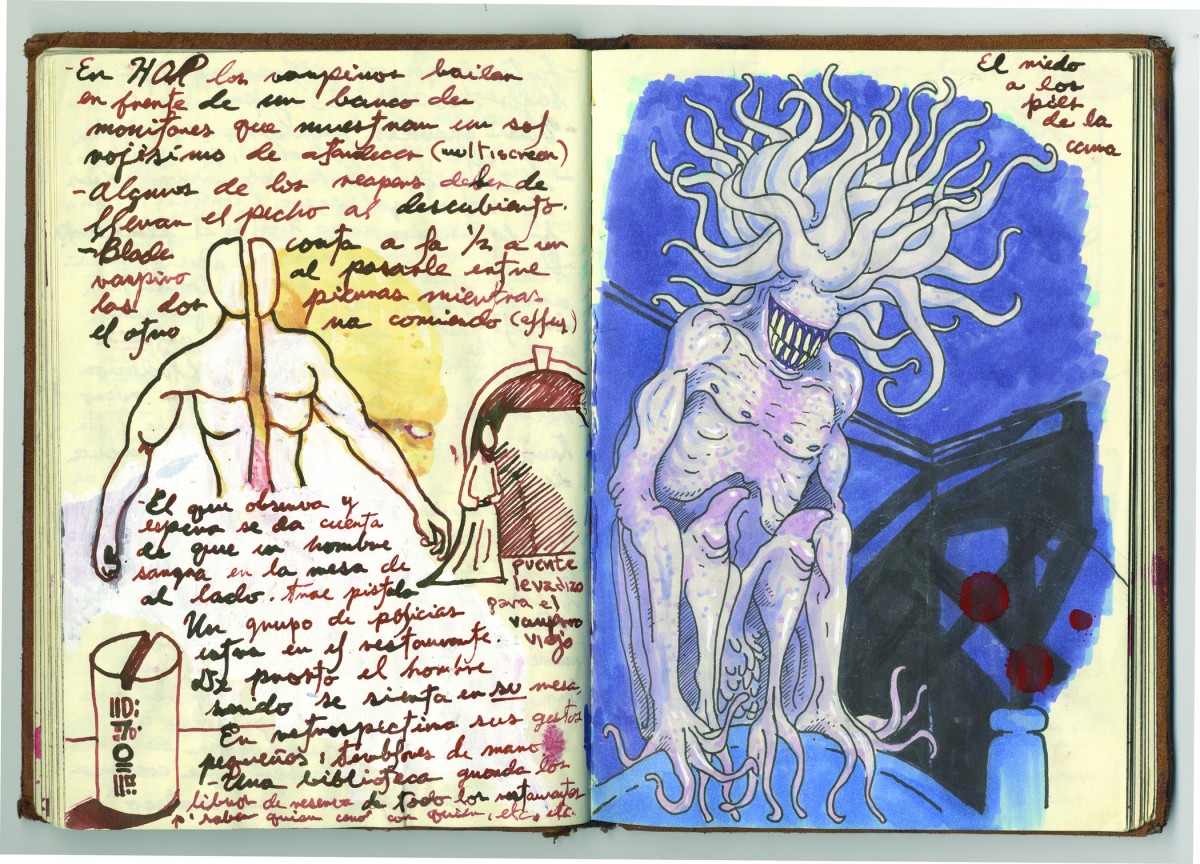 -En HOP los vampiros bailan
en frente de un banco de
monitores que muestran un sol
rojísimo de atardecer (multiscreen)
-Algunos de los reapers deben de
llevan el pecho al descubierto.
-Blade corta a la 1/2 a un
vampiro al pasarle entre
las dos piernas mientras
el otro va comiendo (effex)
-El que observa y
espera se da cuenta
de que un hombre
sangra en la mesa de
al lado. trae pistola
Un grupo de policías
estan en el restaurante.
De pronto el hombre
se sienta en su mesa,
En retrospectiva sus gestos
pequeños, temblores de mano
-Una biblioteca guarda los
libros de reserva de todo los restaurantes
p' saber quien cenó con quién, etc, etc.
puente
levadizo
para el
vampiro
viejo
El miedo
a los
pies
de la
cama